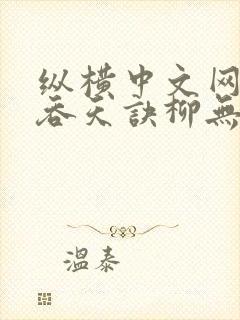 纵横中文网
吞天訣柳無
溫泰